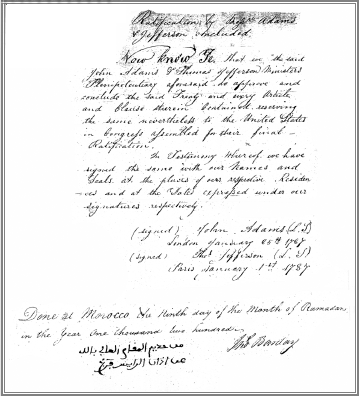 Ratification by Mess.rs Adams
& Jefferson concluded.
Now know Ye, that we the said
John Adams & Thomas Jefferson Ministers
Plenipotentiary aforesaid do approve and
conclude the said Treaty and every Article
and Clause therein contained, reserving
the same nevertheless to the United States
in Congress assembled for their final
Ratification.
In Testimony whereof we have
signed the same with our Names and
Seals, at the places of our respective Residen
-ces and at the dates expressed under our
signatures respectively.
(signed) John Adams (L.S.)
London January 25th 1787
(signed) Tho.s Jefferson (L.S.)
Paris January 1st 1787
Done at Morocco the Ninth day of the Month of Ramadan,
in the Year One thousand two hundred
Tho.s Barclay
من خديم المقام العالي بالله